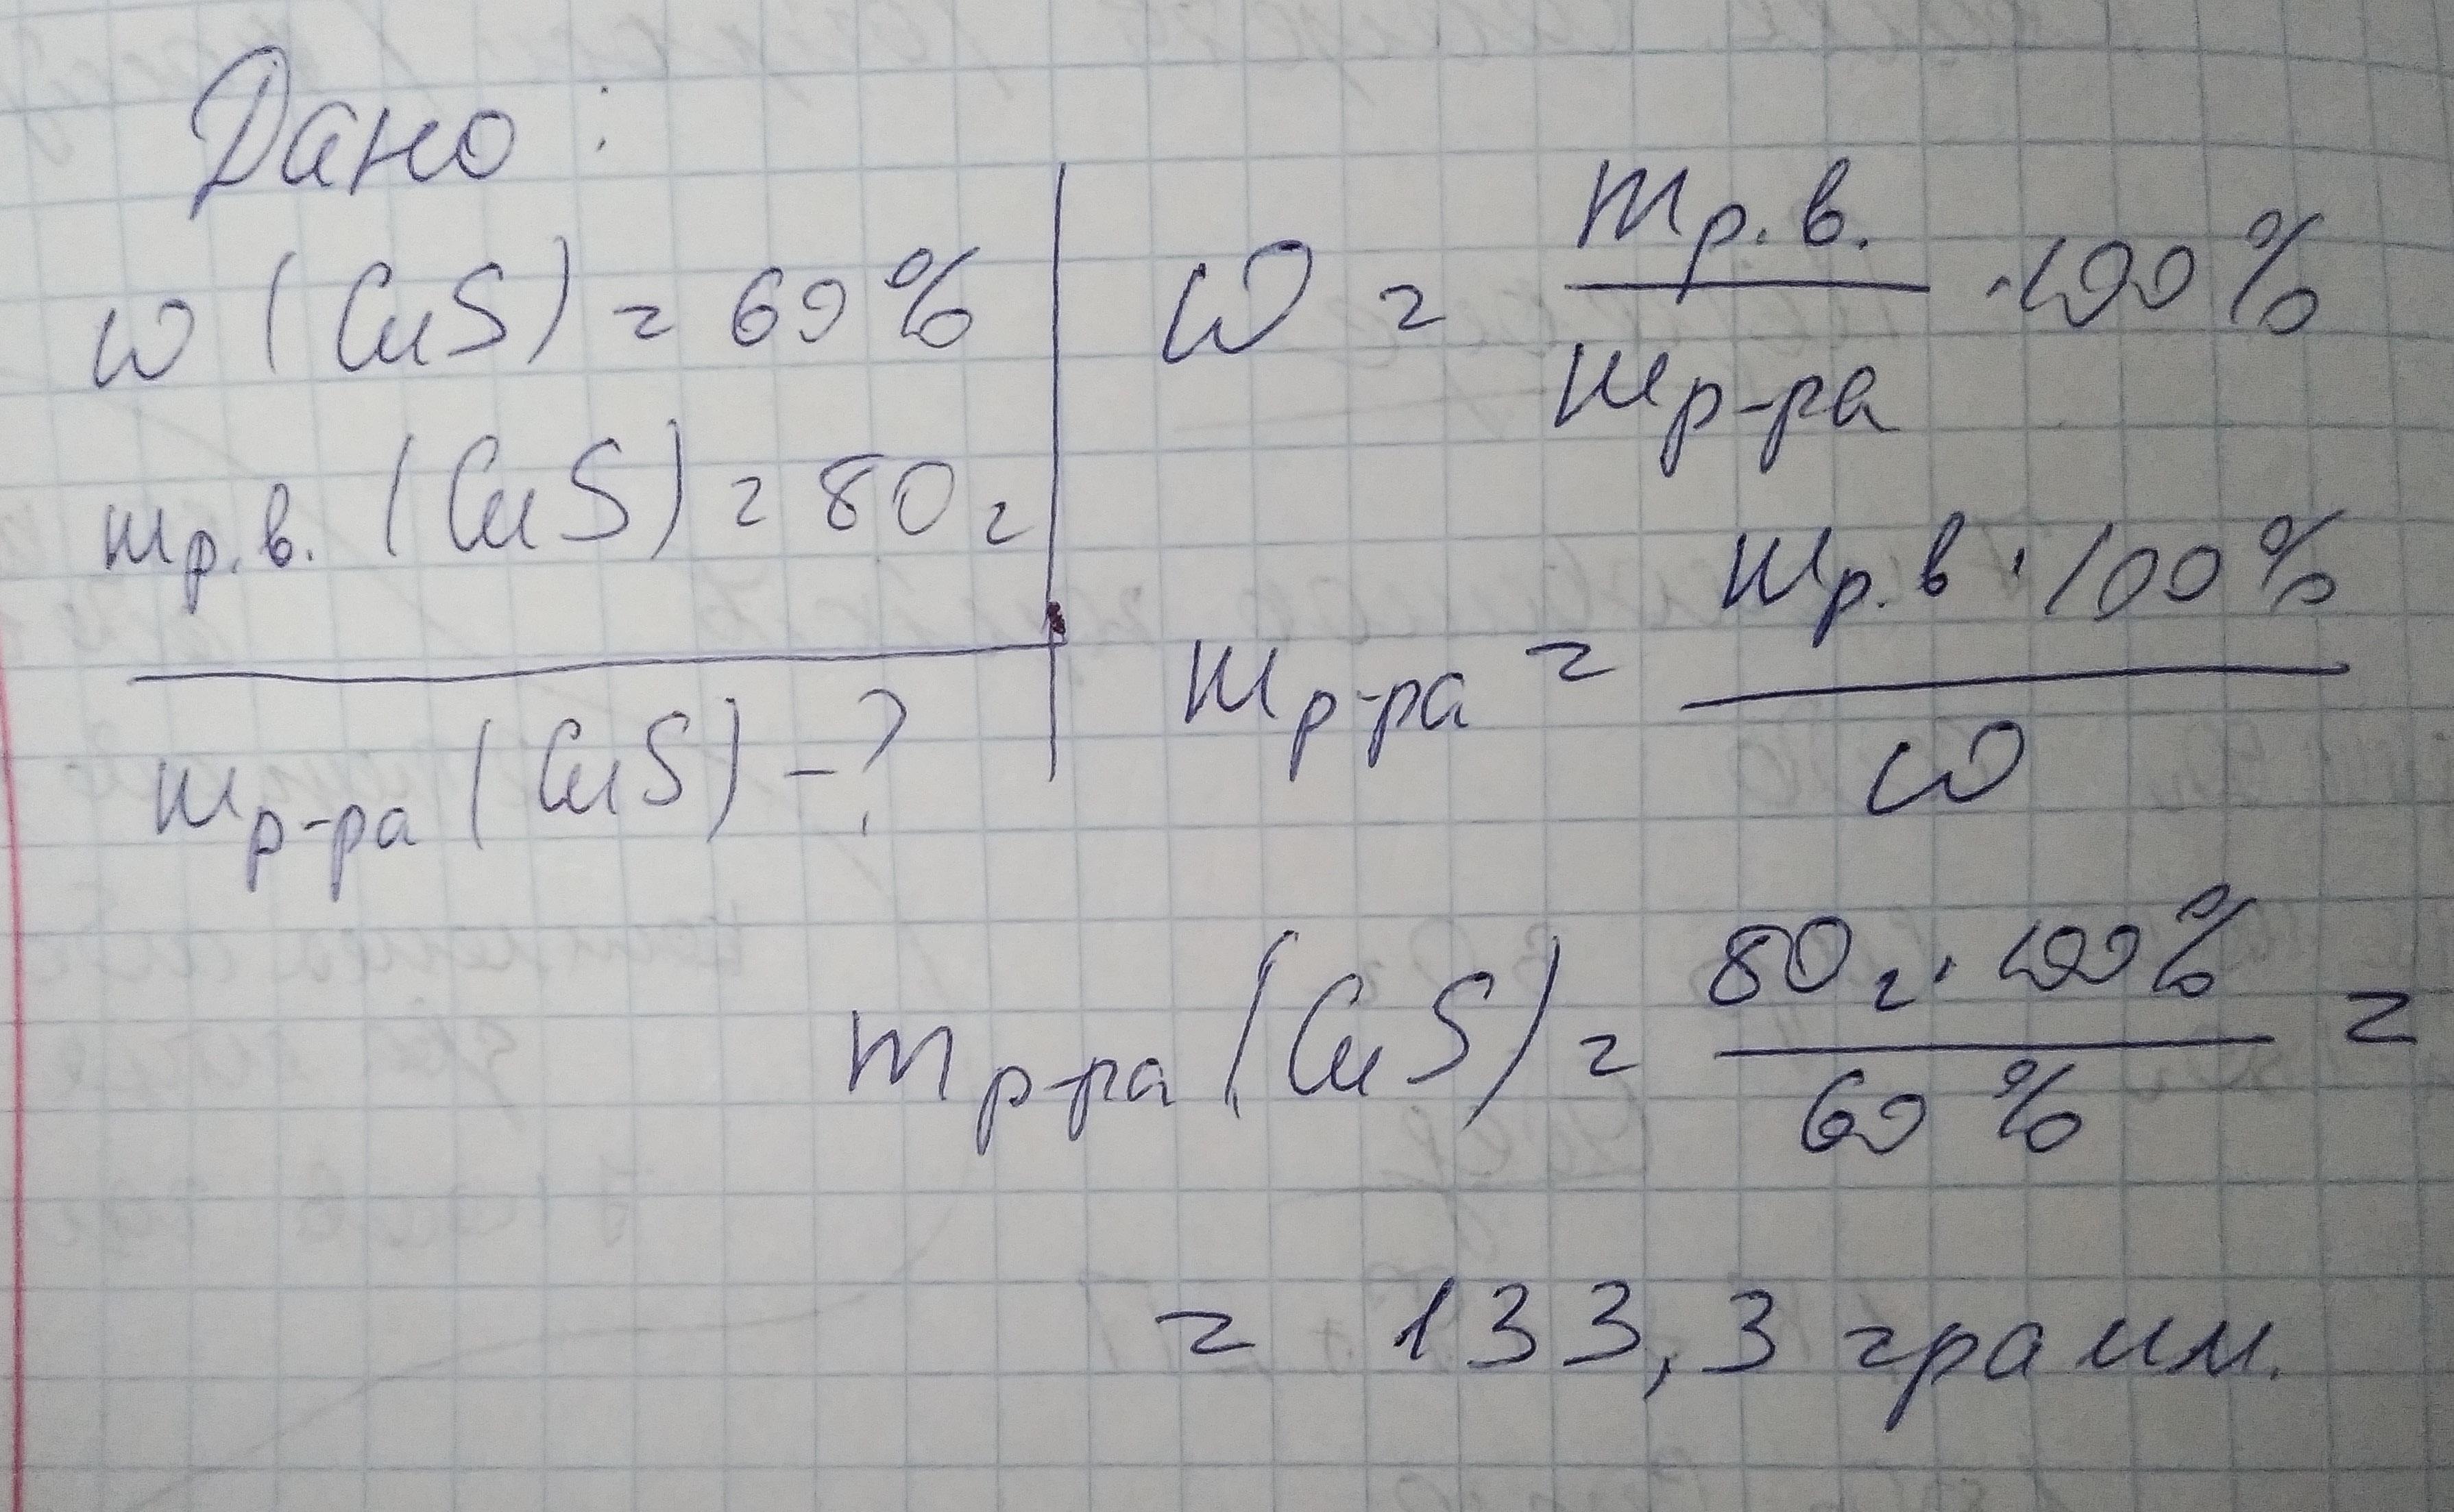 Дано:
ω (CuS) = 60%
mр.в. (CuS) = 80 г
mр-ра (CuS) - ?
ω = mр.в. / mр-ра · 100%
mр-ра = mр.в · 100% / ω
mр-ра (CuS) = 80 г · 100% / 60% =
= 133,3 грамм.